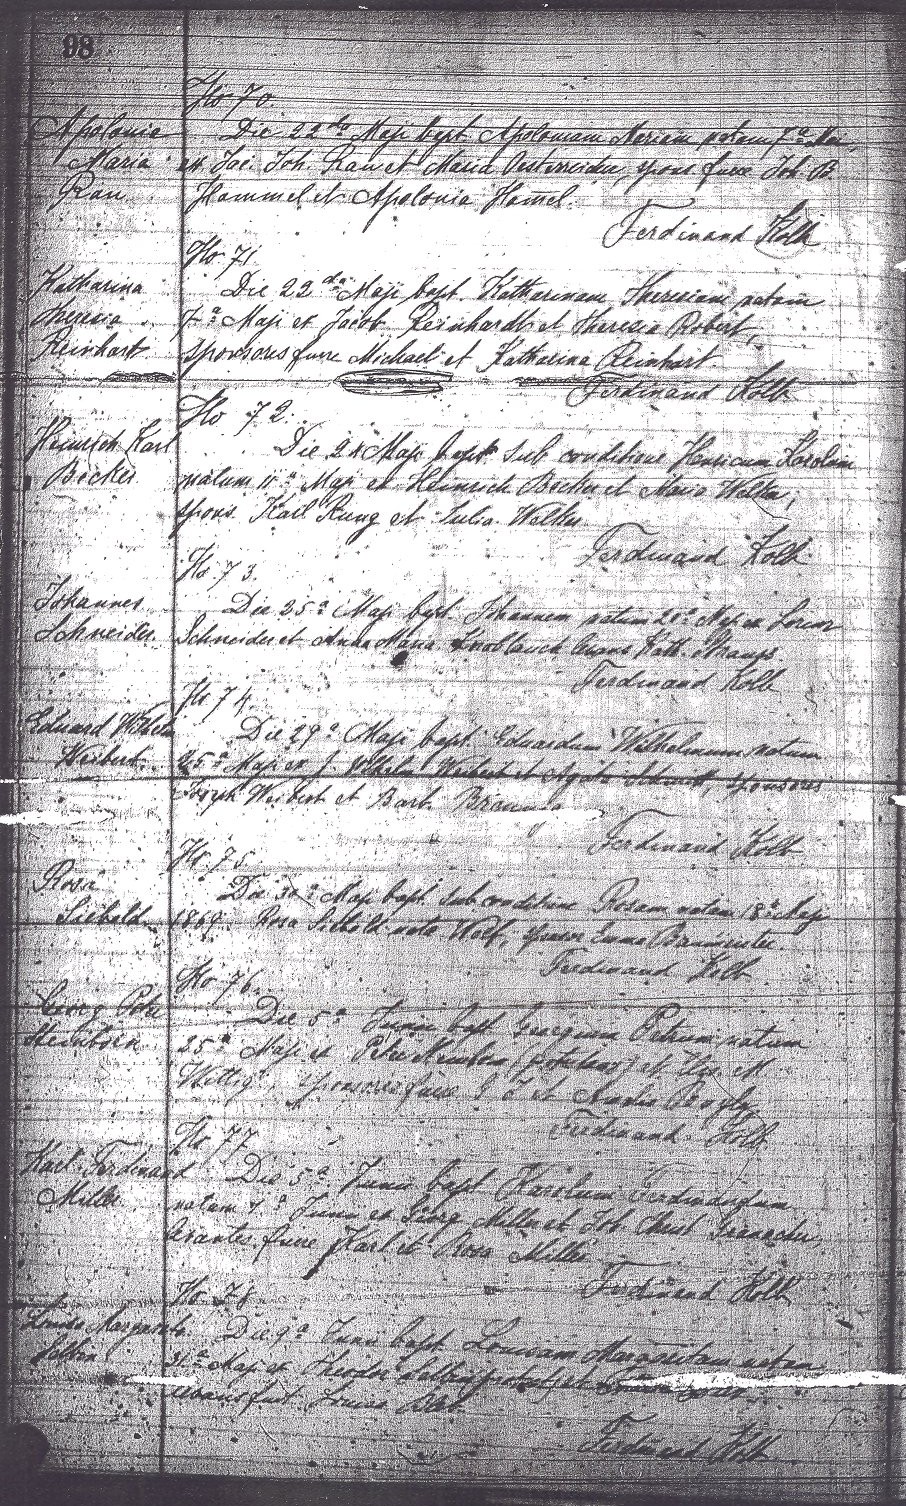 98
No 70.
Apolonia Die 22da Maji bapt. Apoloniam Mariam natam 7a Maii,
Maria ex Joh. Rau et Maria Oesterreicher, spons. fuere Joh. B
Rau Hammel et Apolonia Hamel.
Ferdinand Kolb
No 71.
Katharina Die 22da Maji bapt. Katharinam Theresiam natam
Theresia 7a Maji ex Jacob Reinhardt et Theresia Robert,
Reinhart sponsores fuere Michael et Katharina Reinhart.
Ferdinand Kolb
No 72.
Heinrich Karl Die 24 Maji bapt. sub conditione Henricum Karolum
Becker natum 11a Maji ex Heinrich Becker et Maria Welker,
spons. Karl Rung et Julia Welker
Ferdinand Kolb
No 73.
Johannes Die 25a Maji bapt. Johannem natum 21a Maji ex Lorenz
Schneider. Schneider et Anna Maria Knoblauch levans Kath.
Ferdinand Kolb
No 74.
Eduard Wilhelm Die 29a Maji bapt. Eduardum Wilhelmum natum
Weibert. 25a Maji ex J. Wilhelm Weibert et Agatha Schmitt, sponsores
Joseph Weibert et Barb.
Ferdinand Kolb
No 75.
Rosa Die 30a Maji bapt. sub conditione Rosam natam 18a Maji
Siebold 1869. Rosa Siebold nata Wolf, sponsor Emma
Ferdinand Kolb
No 76.
Georg Peter Die 5a Junii bapt. Georgium Petrum natum
25a Maji ex Peter et Elis. M
Wittig, sponsores fuere G et
Ferdinand Kolb
No 77
Karl Ferdinand Die 5a Junii bapt. Karolum Ferdinandum
Miller natum Junii ex Georg Miller et Joh. Christ.
levantes fuere Karl et Rosa Miller
Ferdinand Kolb
No 78
Louise Margareta Die 9a Junii bapt. Louisam Margaritam natam
31a Maji ex Theodor et
levans fuit Louise
Ferdinand Kolb